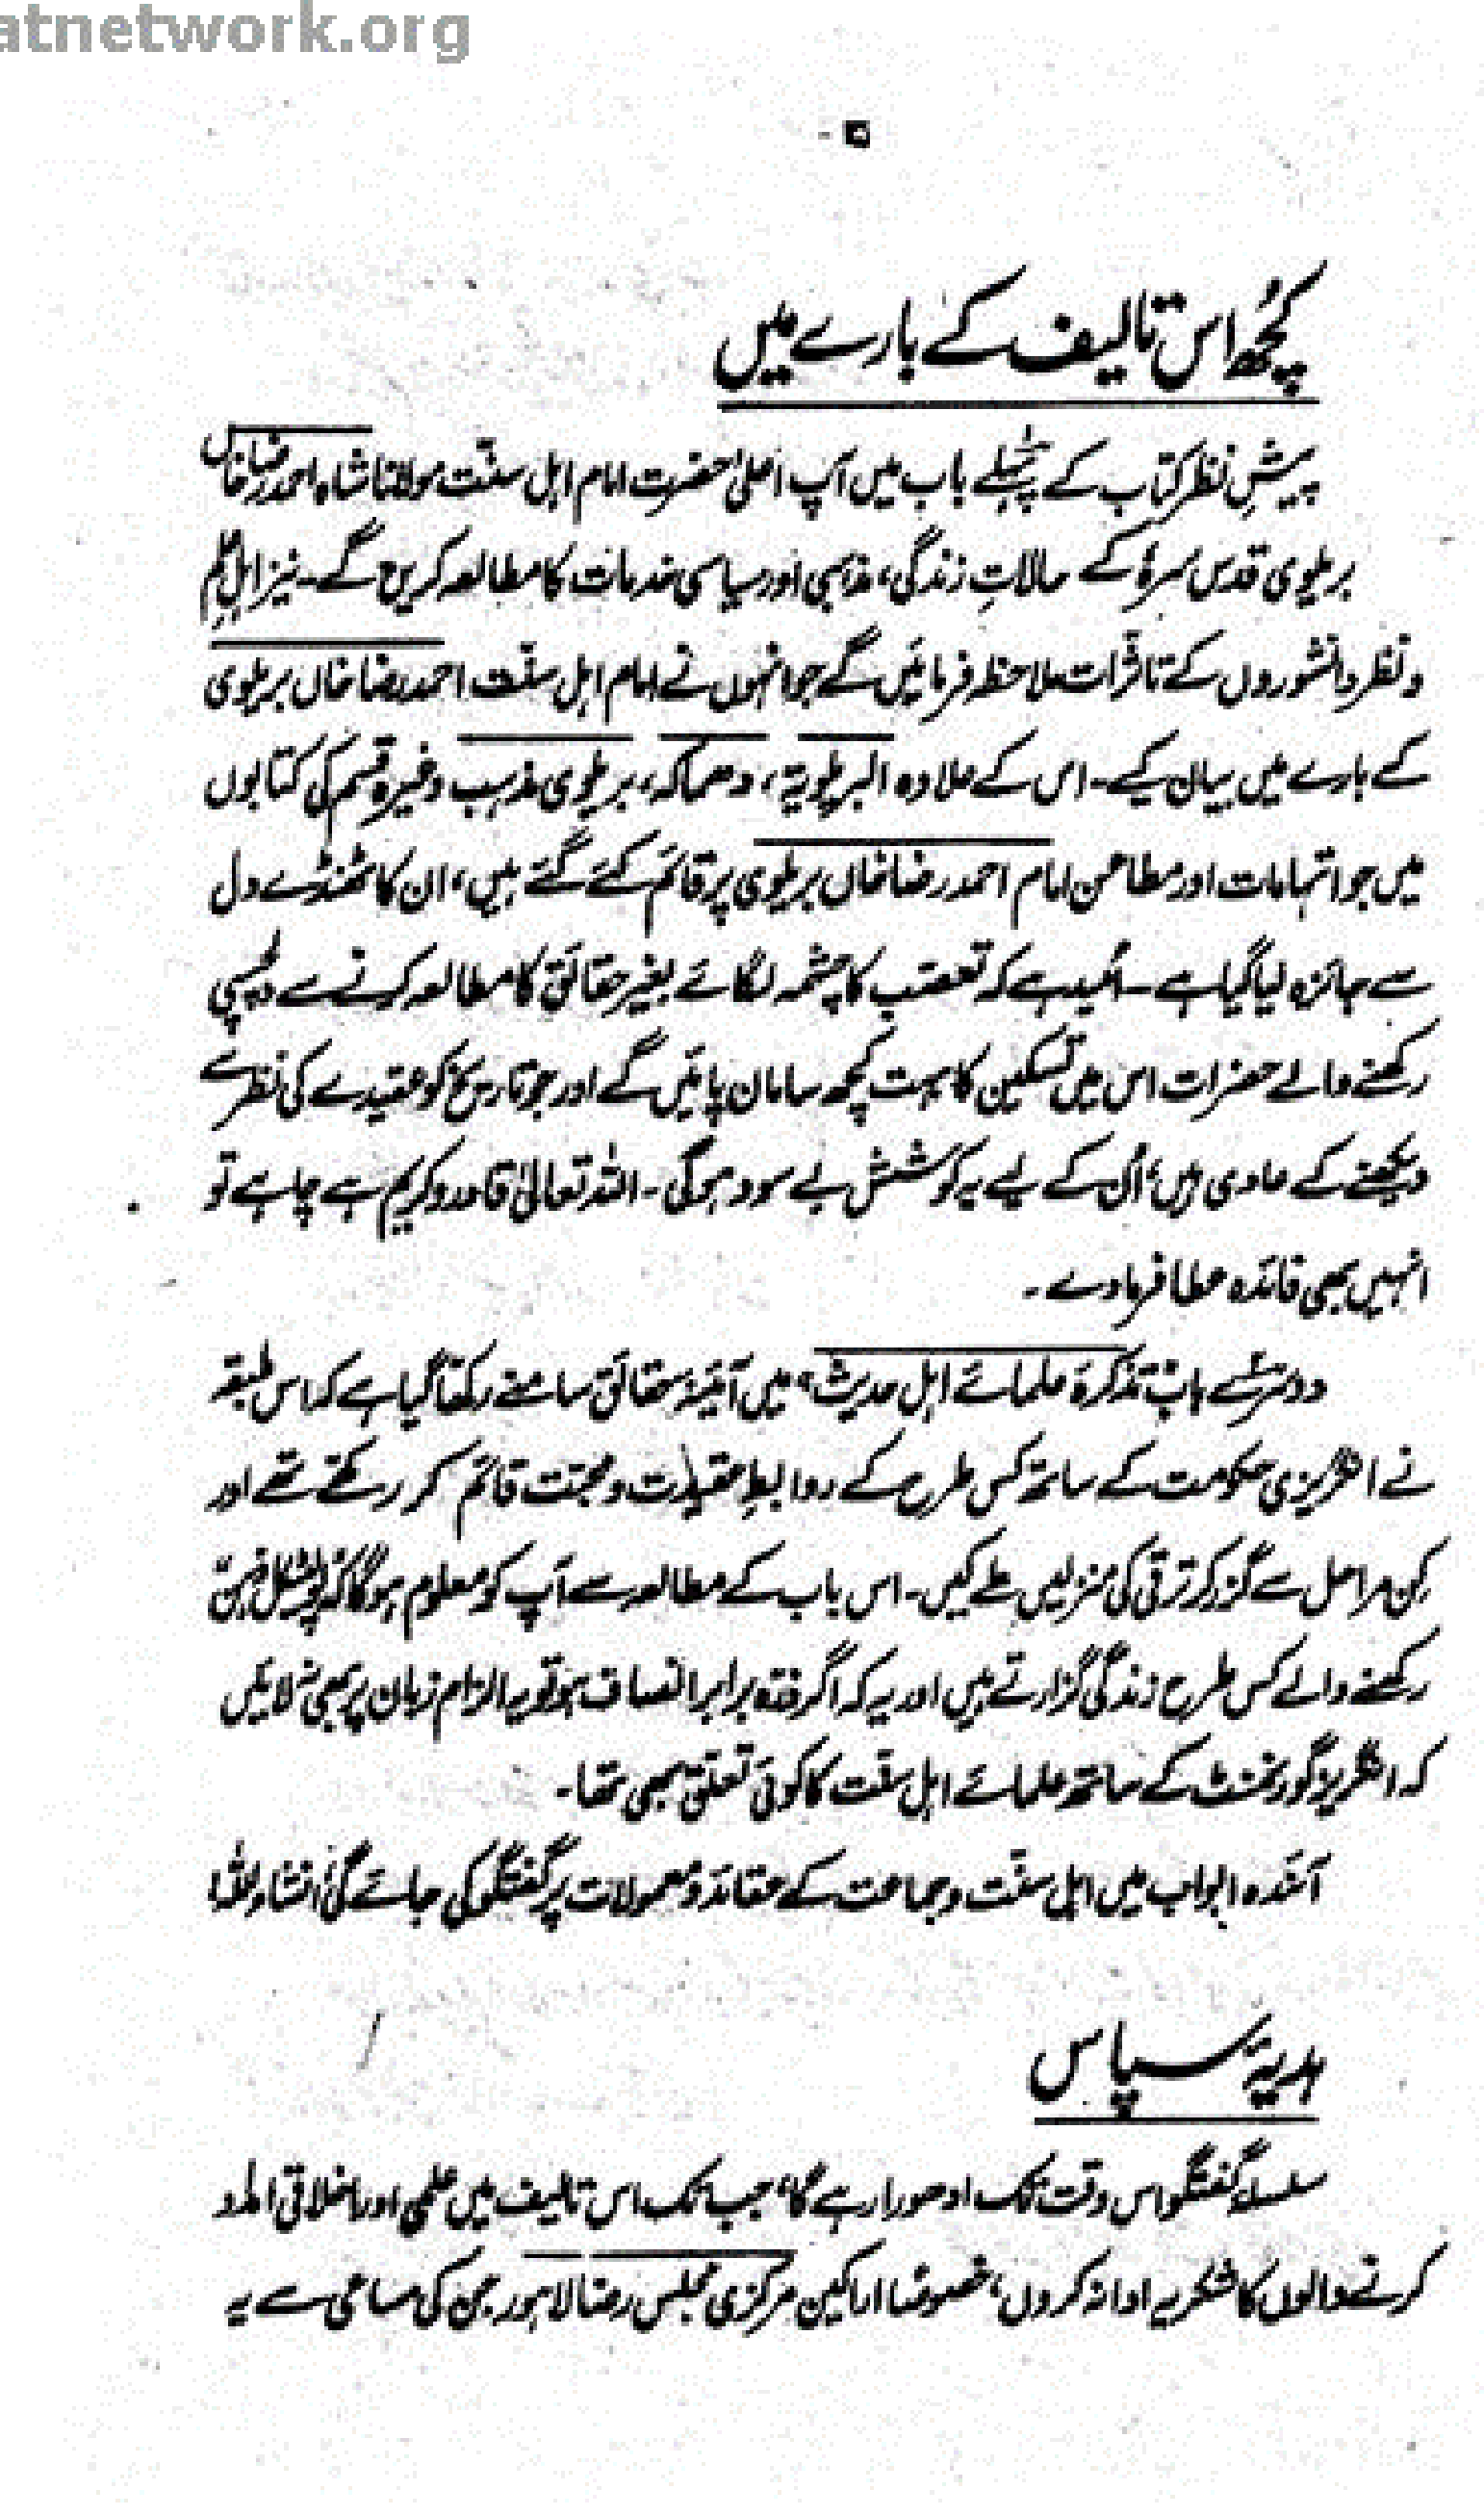 atnetwork.org
کچھ اس تالیف کے بارے میں
پیشِ نظر کتاب کے پہلے باب میں آپ اعلیٰحضرت امام اہل سنّت مولانا شاہ احمد رضا خاں
بریلوی قدس سرہٗ کے حالاتِ زندگی، مذہبی اور سیاسی خدمات کا مطالعہ کریں گے۔ نیز اہلِ علم
و نظر دانشوروں کے تاثرات ملاحظہ فرمائیں گے جو انہوں نے امام اہل سنّت احمد رضا خاں بریلوی
کے بارے میں بیان کیے۔ اس کے علاوہ البریلویۃ، دھماکہ، بریلوی مذہب وغیرہ قسم کی کتابوں
میں جو اتہامات اور مطاعن امام احمد رضا خاں بریلوی پر قائم کئے گئے ہیں، ان کا ٹھنڈے دل
سے جائزہ لیا گیا ہے۔ امید ہے کہ تعصّب کا چشمہ لگائے بغیر حقائق کا مطالعہ کرنے سے دلچسپی
رکھنے والے حضرات اس میں تسکین کا بہت کچھ سامان پائیں گے اور جو تاریخ کو عقیدے کی نظر سے
دیکھنے کے عادی ہیں، اُن کے لیے یہ کوشش بے سود ہو گی۔ اللہ تعالیٰ قادر و کریم ہے چاہے تو
انہیں بھی فائدہ عطا فرما دے۔
دوسرے باب "تذکرۂ علمائے اہل حدیث" میں آئینۂ حقائق سامنے رکھا گیا ہے کہ اس طبقہ
نے انگریزی حکومت کے ساتھ کس طرح کے روابطِ عقیدت و محبّت قائم کر رکھے تھے اور
کن مراحل سے گزر کر ترقی کی منزلیں طے کیں۔ اس باب کے مطالعہ سے آپ کو معلوم ہو گا کہ پولیٹیکل ذہن
رکھنے والے کس طرح زندگی گزارتے ہیں اور یہ کہ اگر ذرّہ برابر انصاف ہو تو یہ الزام زبان پر بھی نہ لائیں
کہ انگریز گورنمنٹ کے ساتھ علمائے اہل سنّت کا کوئی تعلق بھی تھا۔
آئندہ ابواب میں اہل سنّت و جماعت کے عقائد و معمولات پر گفتگو کی جائے گی، انشاء اللہ!
ہدیۂ سپاس
سلسلۂ گفتگو اس وقت تک ادھورا رہے گا، جب تک اس تالیف میں علمی اور اخلاقی امداد
کرنے والوں کا شکریہ ادا نہ کروں، خصوصًا اراکین مرکزی مجلس رضا لاہور جن کی مساعی سے یہ